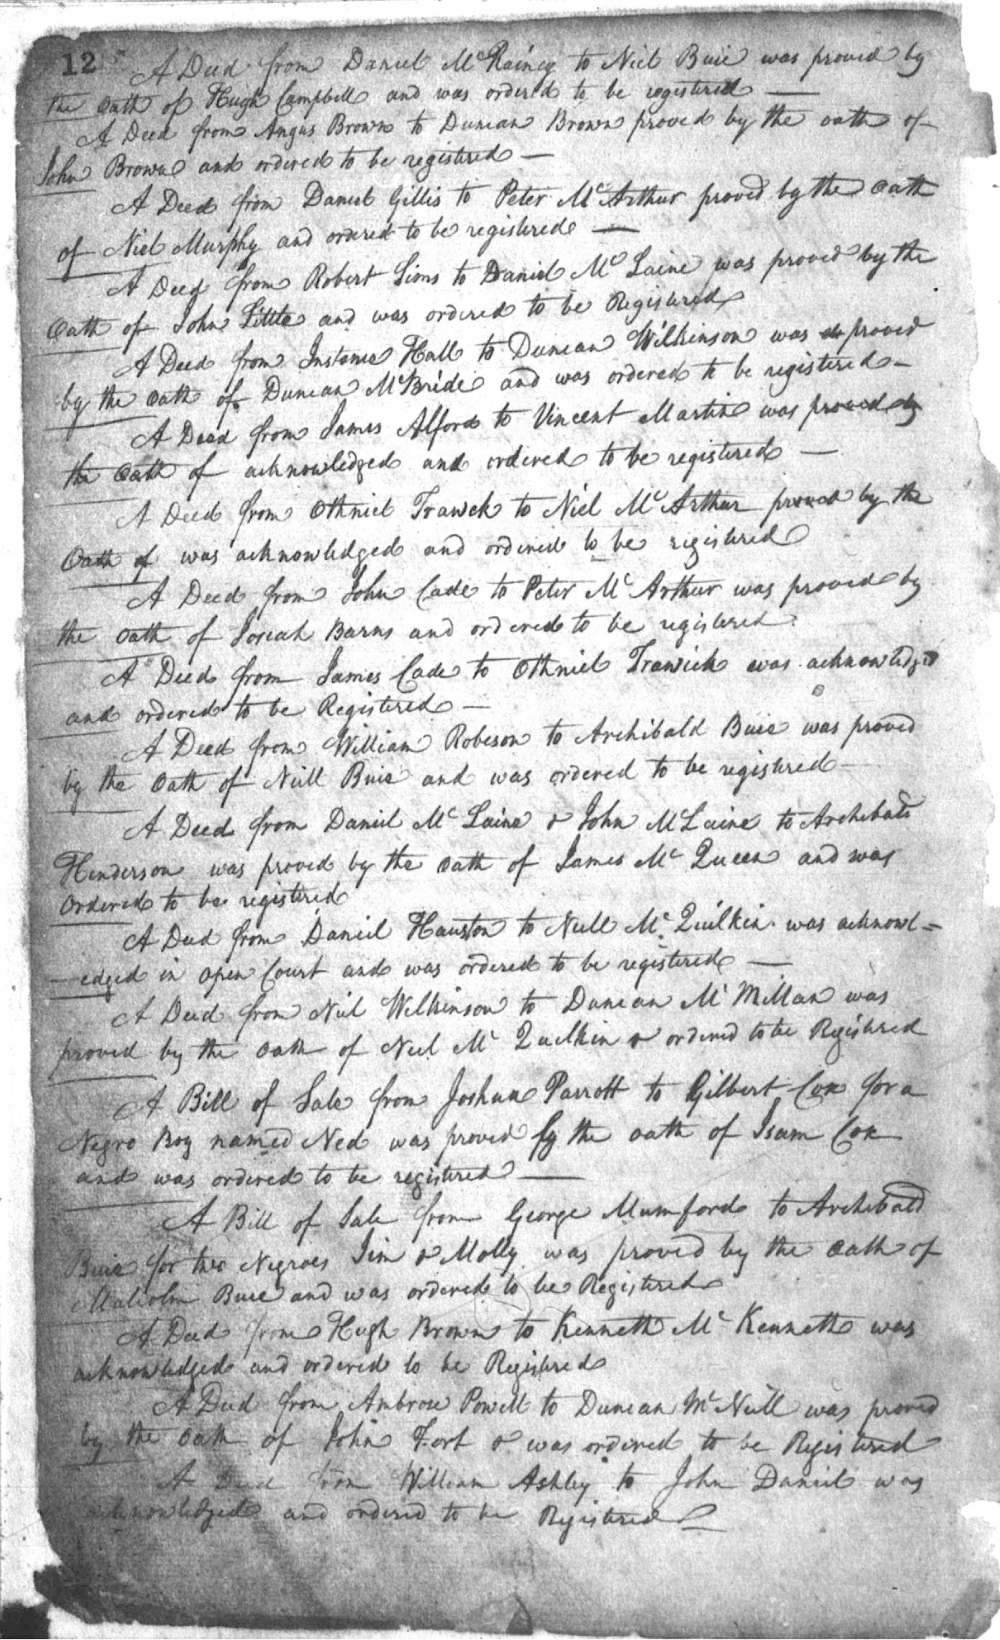 12
A Deed from Daniel McRainey to Niel Buie was proved by
the oath of Hugh Campbell and was ordered to be registered —
A Deed from Angus Brown to Duncan Brown proved by the oath of
John Brown and ordered to be registered —
A Deed from Daniel Gillis to Peter McArthur proved by the oath
of Niel Murphy and ordered to be registered —
A Deed from Robert Sims to Daniel McLaine was proved by the
oath of John Little and was ordered to be Registered
A Deed from Instance Hall to Duncan Wilkinson was proved
by the oath of Duncan McBride and was ordered to be registered -
A Deed from James Alford to Vincent Martin was proved by
the oath of acknowledged and ordered to be registered —
A Deed from Othniel Trawek to Niel McArthur proved by the
Oath of was acknowledged and ordered to be registered
A Deed from John Cade to Peter McArthur was proved by
the oath of Josiah Barns and ordered to be registered
A Deed from James Cade to Othniel Trawick was acknowledged
and ordered to be Registered —
A Deed from William Robeson to Archibald Buie was proved
by the oath of Niell Buie and was ordered to be registered —
A Deed from Daniel McLaine & John McLaine to Archibald
Henderson was proved by the oath of James McQueen and was
ordered to be registered
A Deed from Daniel Hauston to Niell McQuilkin was acknowl=
-edged in open Court and was ordered to be registered —
A Deed from Niel Wilkinson to Duncan McMillan was
proved by the oath of Neil McQuilkin & ordered to be Registered
A Bill of Sale from Joshua Parrott to Gilbert Cox for a
Negro Boy named Ned was proved by the oath of Isum Cox
and was ordered to be registered —
A Bill of Sale from George Mumford to Archibald
Buie for two Negroes Jim & Molly was proved by the oath of
Malcolm Buie and was ordered to be Registered
A Deed from Hugh Brown to Kenneth McKenneth was
acknowledged and ordered to be Registered
A Deed from Ambrose Powell to Duncan McNeill was proved
by the oath of John Fort & was ordered to be Registered
A Deed from William Ashley to John Daniel was
acknowledged and ordered to be Registered —